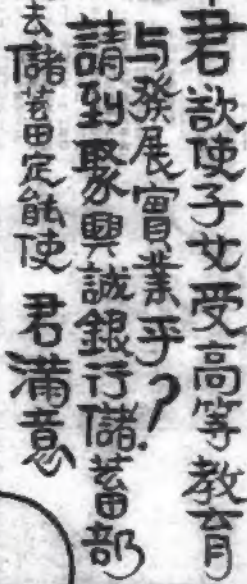 君欲使子女受高等教育
与發展實業乎?
請到聚興誠銀行儲蓄部
去儲蓄定能使 君滿意